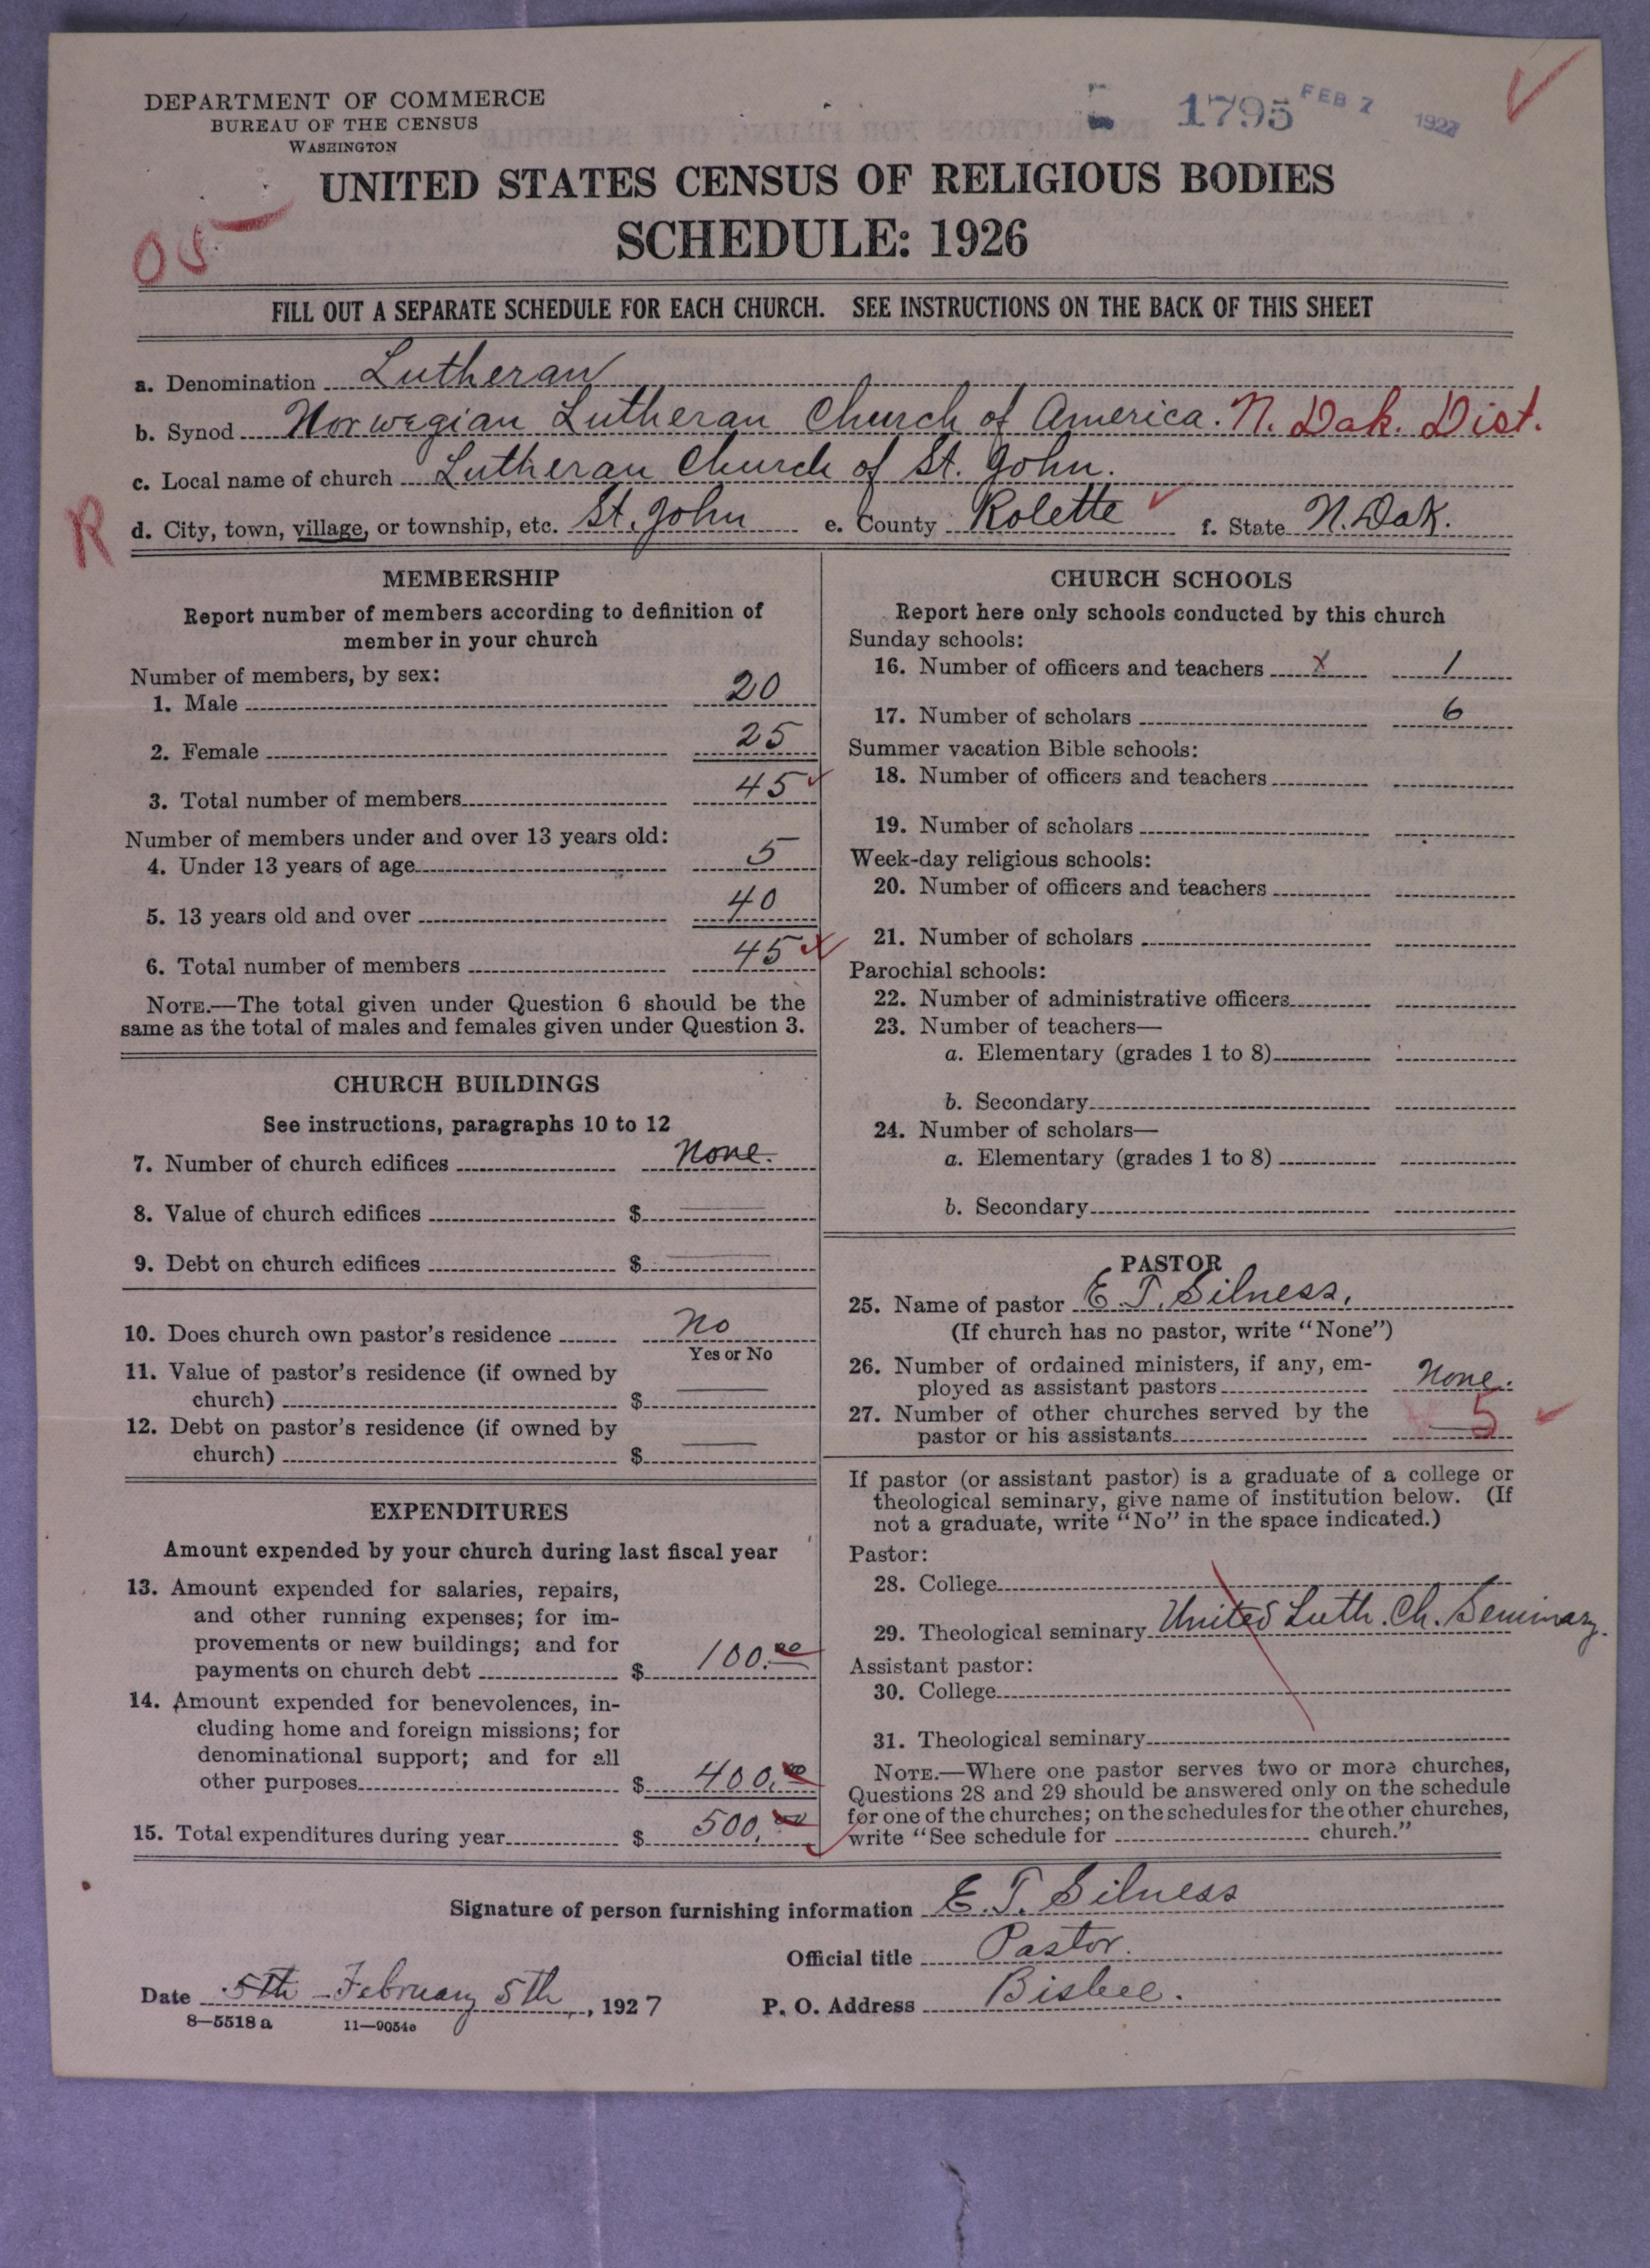 DEPARTMENT OF COMMERCE
BUREAU OF THE CENSUS
WASHINGTON
1795 FEB 7 1927
UNITED STATES CENSUS OF RELIGIOUS BODIES
05
SCHEDULE: 1926
FILL OUT A SEPARATE SCHEDULE FOR EACH CHURCH. SEE INSTRUCTIONS ON THE BACK OF THIS SHEET
a. Denomination Lutheran
b. Synod Norwegian Lutheran Church of America. N. Dak. Dist.
c. Local name of church Lutheran Church of St. John.
R d. City, town, village, or township, etc. St. John e. County Rolette f. State N. Dak.
MEMBERSHIP
Report number of members according to definition of
member in your church
Number of members, by sex:
1. Male 20
2. Female 25
3. Total number of members 45
Number of members under and over 13 years old:
4. Under 13 years of age 5
5. 13 years old and over 40
6. Total number of members 45
NOTE.—The total given under Question 6 should be the
same as the total of males and females given under Question 3.
CHURCH BUILDINGS
See instructions, paragraphs 10 to 12
7. Number of church edifices None.
8. Value of church edifices $
9. Debt on church edifices $
10. Does church own pastor's residence No
Yes or No
11. Value of pastor's residence (if owned by
church) $
12. Debt on pastor's residence (if owned by
church) $
EXPENDITURES
Amount expended by your church during last fiscal year
13. Amount expended for salaries, repairs,
and other running expenses; for im-
provements or new buildings; and for
payments on church debt $ 100.00
14. Amount expended for benevolences, in-
cluding home and foreign missions; for
denominational support; and for all
other purposes $ 400.00
15. Total expenditures during year $ 500.00
CHURCH SCHOOLS
Report here only schools conducted by this church
Sunday schools:
16. Number of officers and teachers x 1
17. Number of scholars 6
Summer vacation Bible schools:
18. Number of officers and teachers
19. Number of scholars
Week-day religious schools:
20. Number of officers and teachers
21. Number of scholars
Parochial schools:
22. Number of administrative officers
23. Number of teachers—
a. Elementary (grades 1 to 8)
b. Secondary
24. Number of scholars—
a. Elementary (grades 1 to 8)
b. Secondary
PASTOR
25. Name of pastor E. T. Silness.
(If church has no pastor, write "None")
26. Number of ordained ministers, if any, em-
ployed as assistant pastors None.
27. Number of other churches served by the
pastor or his assistants 5
If pastor (or assistant pastor) is a graduate of a college or
theological seminary, give name of institution below. (If
not a graduate, write "No" in the space indicated.)
Pastor:
28. College
29. Theological seminary United Luth. Ch. Seminary.
Assistant pastor:
30. College
31. Theological seminary
NOTE.—Where one pastor serves two or more churches,
Questions 28 and 29 should be answered only on the schedule
for one of the churches; on the schedules for the other churches,
write "See schedule for church."
Signature of person furnishing information E. T. Silness
Official title Pastor.
Date 5th – February 5th, 1927 P. O. Address Bisbee.
8—5518 a 11—9054c